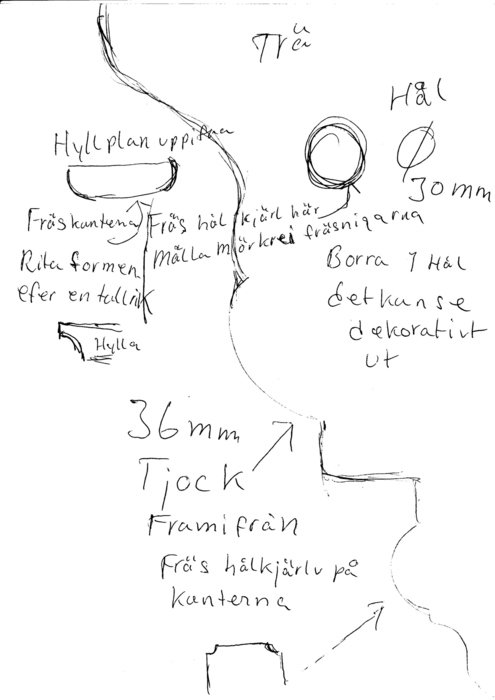 Trä
Hål
30mm
Hyllplan uppifrån
Fräs kanterna
Fräs hål kjärl här
Mälla mörkrei fräsnigarna
Rita formen
efer en tallrik
Hylla
Borra 1 Hål
det kan se
dækorativt
ut
36mm
Tjock
Framifrån
Fräs hålkjärlv på
kanterna